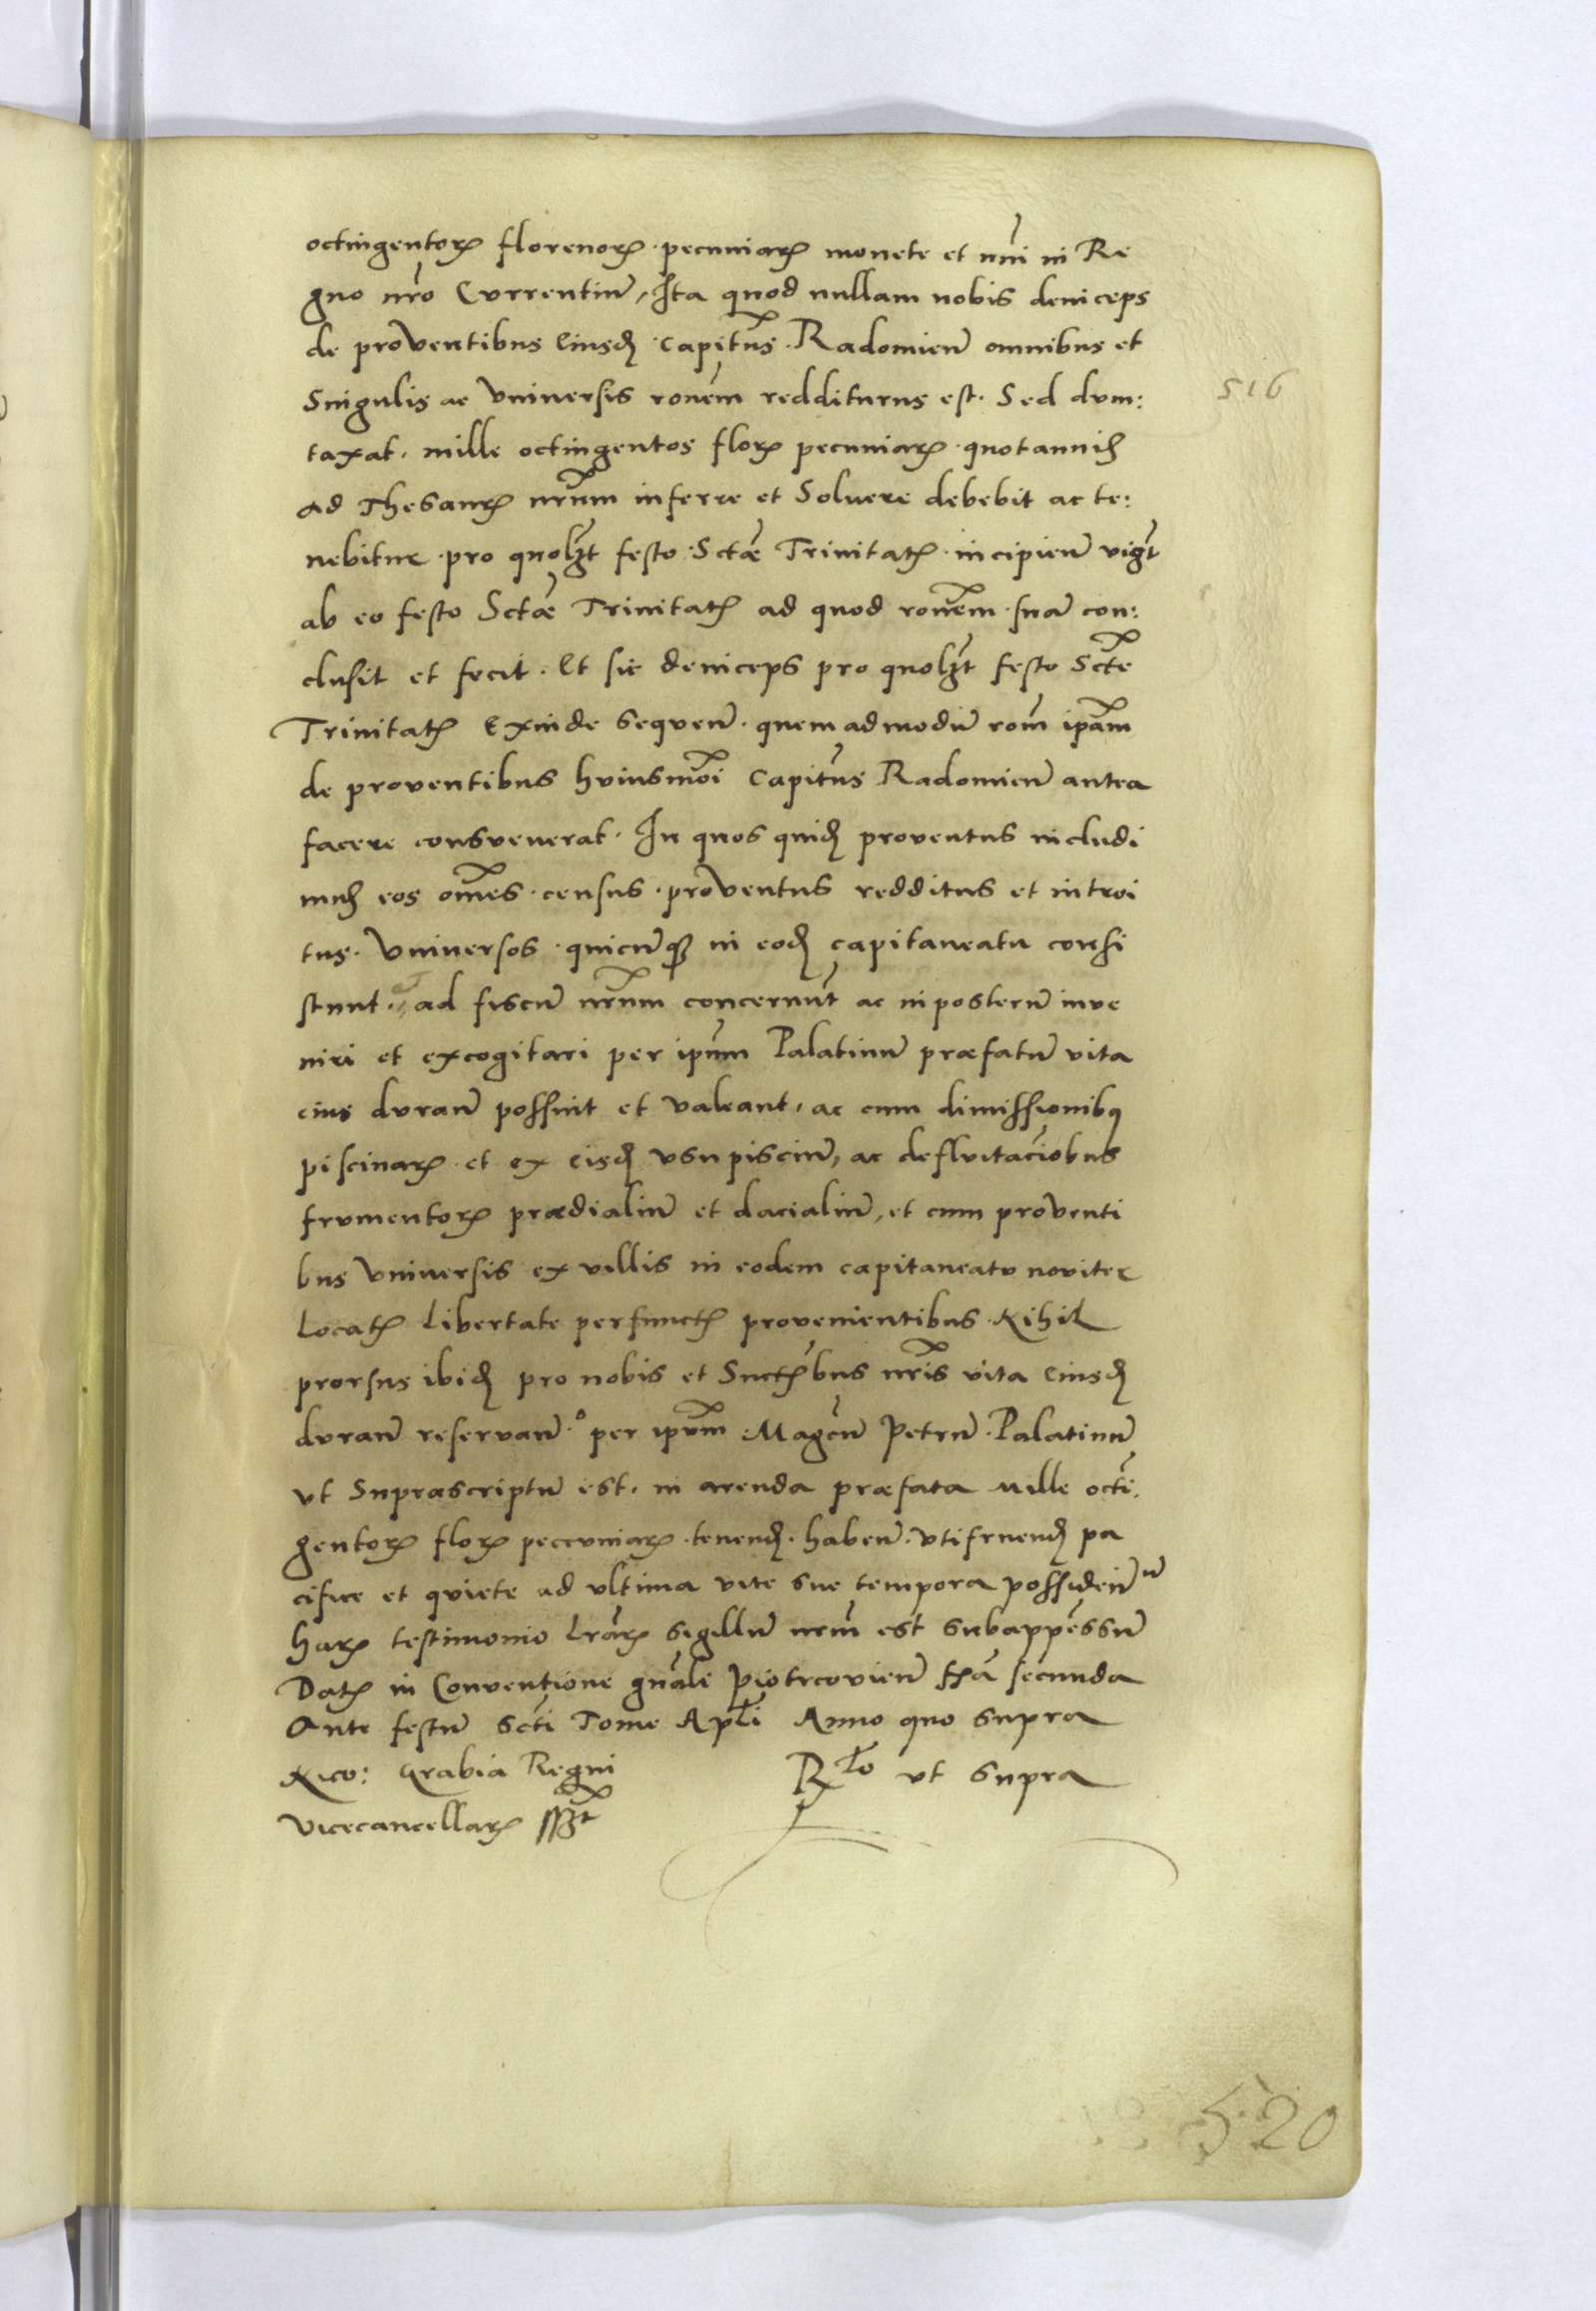 octingentorꝝ florenorꝝ pecuniarꝝ monete et nn̄i in Re
gno nr̄o Currentiū, Ita quod nullam nobis deinceps
de proventibus Eiusdꝫ Capitꝰus Radomien̄ omnibus et
516
Singulis ac Vniversis ron̄em redditurus est. Sed dum:
taxat. mille octingentos florꝝ pecuniarꝝ quotannis
ad Thesaurꝝ nr̄um inferre et Soluere debebit ac te:
nebitur pro quolꝫt festo Sctæ Trinitatꝭ incipien̄ vigꝫt
ab eo festo Sctæ Trinitatꝭ ad quod ron̄em suā con:
clusit et fecit. Et sic deinceps pro quolꝫt festo Sct̄e
Trinitatꝭ Exinde sequen̄. quemadmodū rom̄ ip̄am
de proventibus huiusmōi Capitn̄s Radomien̄ antea
facere consveverat. In quos quidꝫ proventus includi
mus eos om̄es census proventus redditus et introi
tus Vniversos quicunqꝫ in eodꝫ capitaneatu consi
stunt. ad fiscū nr̄um concernūt ac in posterū inve
niri et excogitari per ip̄um Palatinū præfatū vita
eius duran̄ possint et valeant, ac cum dimissionibꝰ
piscinarꝝ et ex eisdꝫ vsu pisciū, ac defluitaciōbus
frumentorꝝ prædialiū et dacialiū, et cum proventi
bus Vniversis ex villis in eodem capitaneatu noviter
Locatꝭ Libertate perfunctꝭ provenientibus Nihil
prorsus ibidꝫ pro nobis et Suctꝭbus nr̄is vita Eiusdꝫ
duran̄ reservan̄. per ip̄um Magcū Petrū Palatinū
vt Suprascriptū est. in arenda præfata Mille octī
gentorꝝ florꝝ peccuniarꝝ tenendꝫ. haben̄. Vtifruendꝫ pa
cifice et quiete ad vltima vite sue tempora possiden̄
harꝝ testimonio Lr̄arꝝ sigillū nrm̄ est subappēssū
Datꝭ in Conventione gn̄ali Piotrcovien̄ fr̄ia secunda
Ante festū Sctī Tome Apłi Anno quo supra
Nico: Grabia Regni
Vicecancellarꝝ sszt
Rło vt supra
520